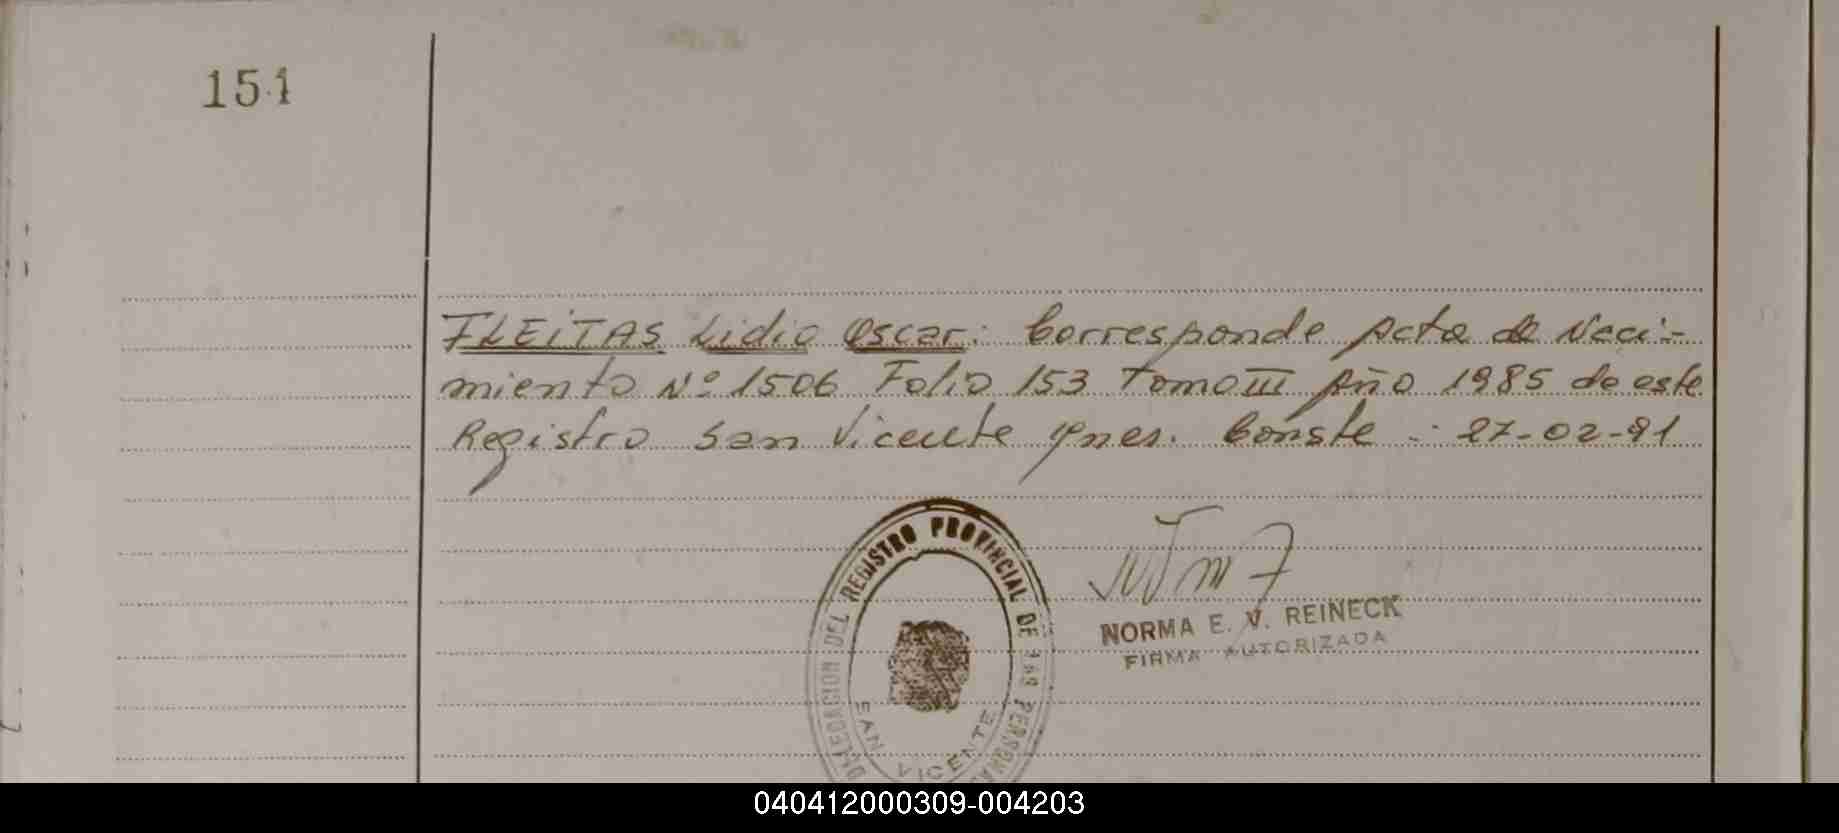 151
FLEITAS Lidio Oscar: Corresponde Acta de Naci-
miento Nº 1506 Folio 153 Tomo III Año 1985 de este
Registro San Vicente Mnes. Conste.: 27-02-91
DELEGACION DEL REGISTRO PROVINCIAL DE LAS PERSONAS
SAN VICENTE
NORMA E. V. REINECK
FIRMA AUTORIZADA
040412000309-004203